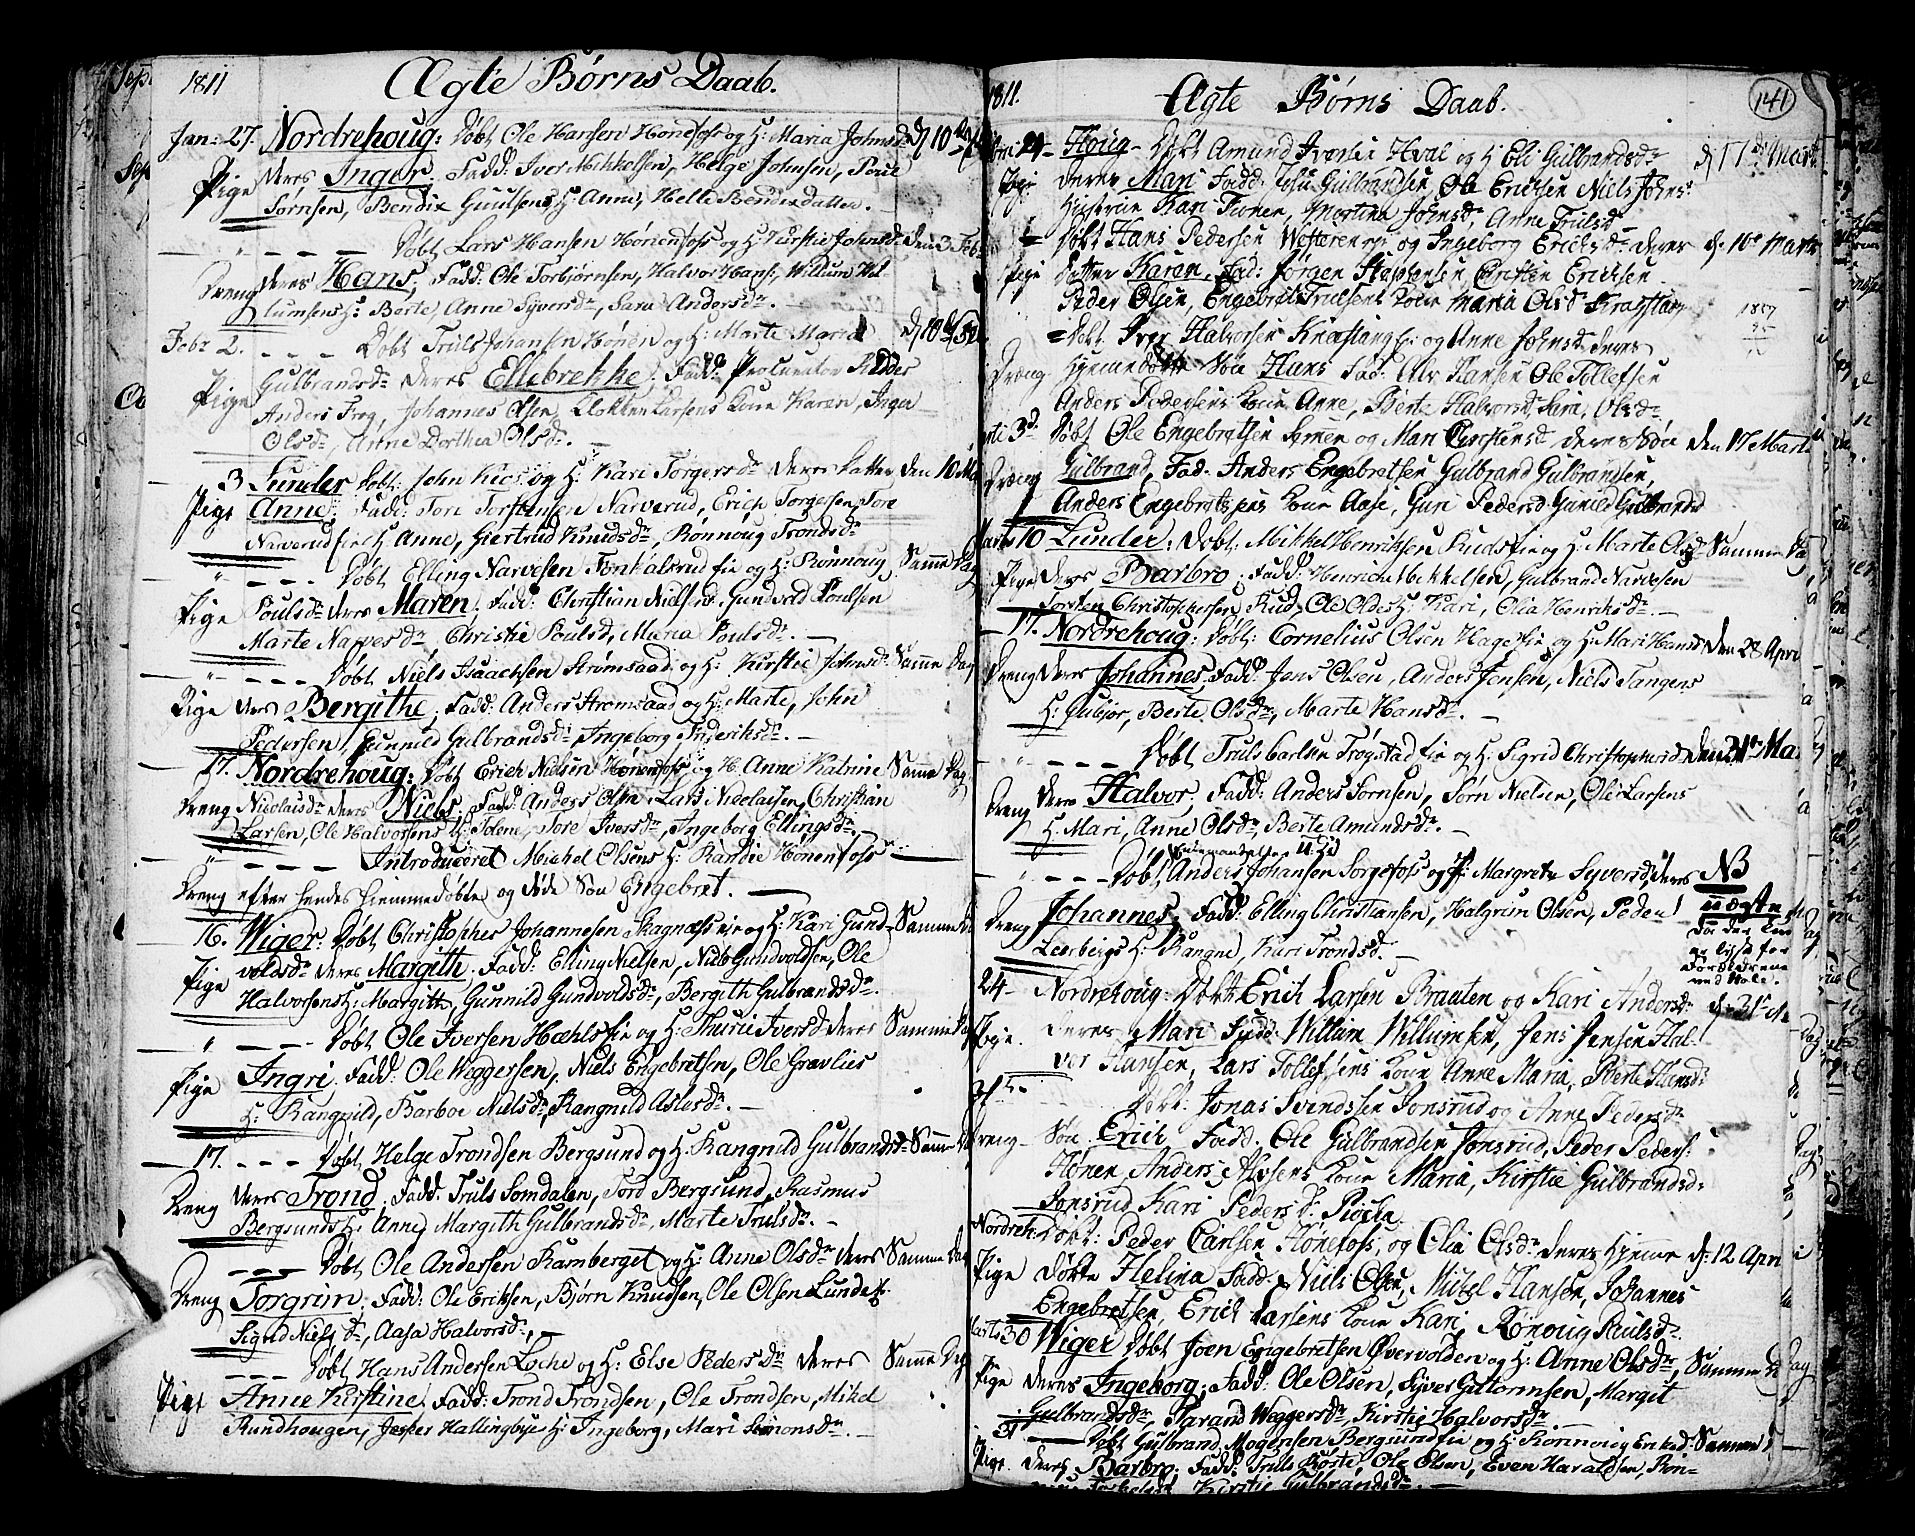 1811 Ægte Børns Daab.
Jan: 27. Nordrehoug: Døbt Ole Hansen Hønefoss og H: Maria Johnsdr
Pige deres Inger. Fadd: Iver Mikkelsen, Helge Johnsen, Poul
Sørnsen, Bendix Guulsens H: Anne, Helle Bendixdatter.
Døbt Lars Hansen Hønenfoss og H: Kirstie Johnsdr den 3 Febr
Dreng deres Hans, Fadd: Ole Torbjørnsen, Halvor Hans: Willum Wil
lumsens H: Berte, Anne Syversdr, Sara Andersdr.
Febr 2. Døbt Truls Johansen Hønen og H: Marte Maria
Pige Gulbrandsdr deres Ellebrekke. Fadd: Procurator Ridder
Anders Frog, Johannes Olsen, Klokker Larsens Kone Karen, Inger
Olsdr, Anne Dorthea Olsdr.
3 Lunder Døbt: John og H: Kari Torgersdr deres Datter den 10 Ma
Pige Anne. Fadd: Tore Torstensen Narverud, Erich Torgersen, Tore
Narverud H: Anne, Giertrud Knudsdr, Rønnoug Trondsdr
Døbt Elling Narvesen Fonkalsrud eie og H: Rønnoug Samme Dag
Pige Poulsdr deres Maren. Fadd: Christian Nielsen, Gundvold Poulsen
Marte Narvesdr, Christie Poulsd, Maria Poulsdr.
Døbt Niels Isaachsen Strømsaad og H: Kirstie Johnsdr Samme Dag
Pige deres Bergithe, Fadd: Anders Strømsaad og H: Marte, John
Pedersen, Gunnild Gulbrandsdr, Ingeborg Frideriksdr.
17. Nordrehoug: Døbt Erich Nielsen Hønenfoss og H: Anne Katrine Samme Dag
Dreng Nicolaisdr deres Niels, Fadd: Anders Olsen, Lars Nicolaisen, Christian
Larsen, Ole Halvorsens H: Tolene, Tore Iversdr, Ingeborg Ellingsdr.
Introduceret Michel Olsens H: Randie Hønenfoss
Dreng efter hendes hiemmedøbte og døde Søn Engebret.
16. Wiger: Døbt Christopher Johannesen Skagnæs eie og H: Kari Gund Samme
Pige voldsdr deres Margith. Fadd: Elling Nielsen, Niels Gundvoldsen, Ole
Halvorsens H: Margith, Gunnild Gundvoldsdr, Bergith Gulbrandsdr.
Døbt Ole Iversen Hæhls eie og H: Thurie Iversd deres Samme Dag
Pige Ingri. Fadd: Ole Weggersen, Niels Engebretsen, Ole Gravlies
H: Rangnild, Barboe Nielsdr, Rangnild Aslesdr.
17. Døbt Helge Trondsen Bergsund og H: Rangnild Gulbrandsdr Samme D
Dreng deres Trond. Fadd: Truls Somdalen, Tord Bergsund, Rasmus
Bergsunds H: Anne, Margith Gulbrandsdr, Marte Trulsdr.
Døbt Ole Andersen Ramberget og H: Anne Olsdr deres Samme Dag
Dreng Torgrim. Fadd: Ole Eriksen, Bjørn Knudsen, Ole Olsen Lunde
Sigrid Nielsdr, Aasa Halvorsdr,
Døbt Hans Andersen Loche og H: Else Pedersdr deres Samme Dag
Pige Anne Kirstine. Fadd: Trond Trondsen, Ole Trondsen, Mikel
Rundhougen, Jesper Hallingbye H: Ingeborg, Mari Simonsdr.
1811. Ægte Børns Daab. 141
Houg - Døbt Amund Iversen Hval og H Eli Gulbrandsdr d 17 Marti
Pige deres Mari Fadd: Gulbrandsen Ole Ericksen Niels Johns:
Hustrue Kari Hønen, Martina Johnsd: Anne Trulsd
Døbt Hans Pedersen og Ingeborg Ericksdr deres d: 10 Marti
Pige datter Karen, Fad: Jørgen Christen Ericksen
Peder Olsen, Engebret Trulsens Kone Maria Olsdr
Døbt Iver Halvorsen Knæstang og Anne Johnsd deres
Dreng hjemmedøbte Søn Hans Fad: Hansen Ole Tollefsen
Anders Pedersens Kone Anne, Berte Halvorsd, Olsdr
3d Døbt Ole Engebretsen og Mari deres Søn den 17 Marti
Dreng Gulbrand, Fad: Anders Engebretsen Gulbrand Gulbrandsen,
Anders Engebretsens Kone Aase, Guri Pedersd Gunild Gulbrandsd
Marts 10 Lunder: Døbt: Mikkel Henriksen Ruds eie og H: Marte Samme Dag
Pige deres Barbro. Fadd: Henrich Mikkelsen, Gulbrand Narvesen
Torsten Christophersen Rud, Ole H: Kari, Olia Henriksdr.
17. Nordrehoug: Døbt: Cornelius Olsen Hages eie og H: Mari Hansd den 28 Apri
Dreng deres Johannes, Fadd: Jens Olsen, Anders Jensen, Niels Tangens
H: Gubjør, Berte Olsdr, Marte Hansdr.
Døbt Truls Carlsen Trøgstad eie og H: Sigrid Christophersd den 31 Ma
Dreng deres Halvor. Fadd: Anders Sørnsen, Sørn Nielsen, Ole Larsens
H: Mari, Anne Olsdr, Berte Amundsdr.
Døbt Anders Johansen Sorgefoss og P: Margrete Syversdr, deres NB
Dreng Johannes, Fadd: Elling Christiansen, Halgrim Olsen, Peder uægte
Leerbergs H: Rangne, Kari Trondsd.
24 - Nordrehoug: Døbt Erich Larsen Braaten og Kari Andersdr d: 31 M
Pige deres Mari Fadd: Willum Willumsen, Jens Jensen Hal-
vor Hansen, Lars Tollefsens Kone Anne Maria, Berte Hansd
Døbt: Jonas Svendssen Jonsrud og Anne Pedersdr
Dreng - Søn Erich Fadd: Ole Gulbrandsen Jonsrud, Peder Peders:
Hønen, Anders Kone Maria, Kirstie Gulbrandsd:
Jonsrud, Kari Pedersdr
Nordreh: Døbt: Peder Carlsen Hønefoss, og Olia Olsdr deres hjemme d: 12 Apri
Pige døbte Helina Fadd: Niels Olsen, Mikel Hansen, Johannes
Engebretsen, Erich Larsens Kone Kari, Rønoug Paulsdr.
Marts 30 Wiger Døbt Joen Engebretsen Øvervolden og H: Anne Olsdr, Samme Dag
Pige deres Ingeborg: Fadd: Ole Olsen, Syver Guttormsen, Margit
Gulbrandsdr, Tarand Weggersdr, Kirstie Halvorsdr.
31 Døbt Gulbrand Mogensen Bergsund eie og H: Rønnoug Samme
Pige. deres Barbro: Fadd: Truls Ole Olsen, Even Haraldsen, Røn-
Kirstie Gulbrandsdr.